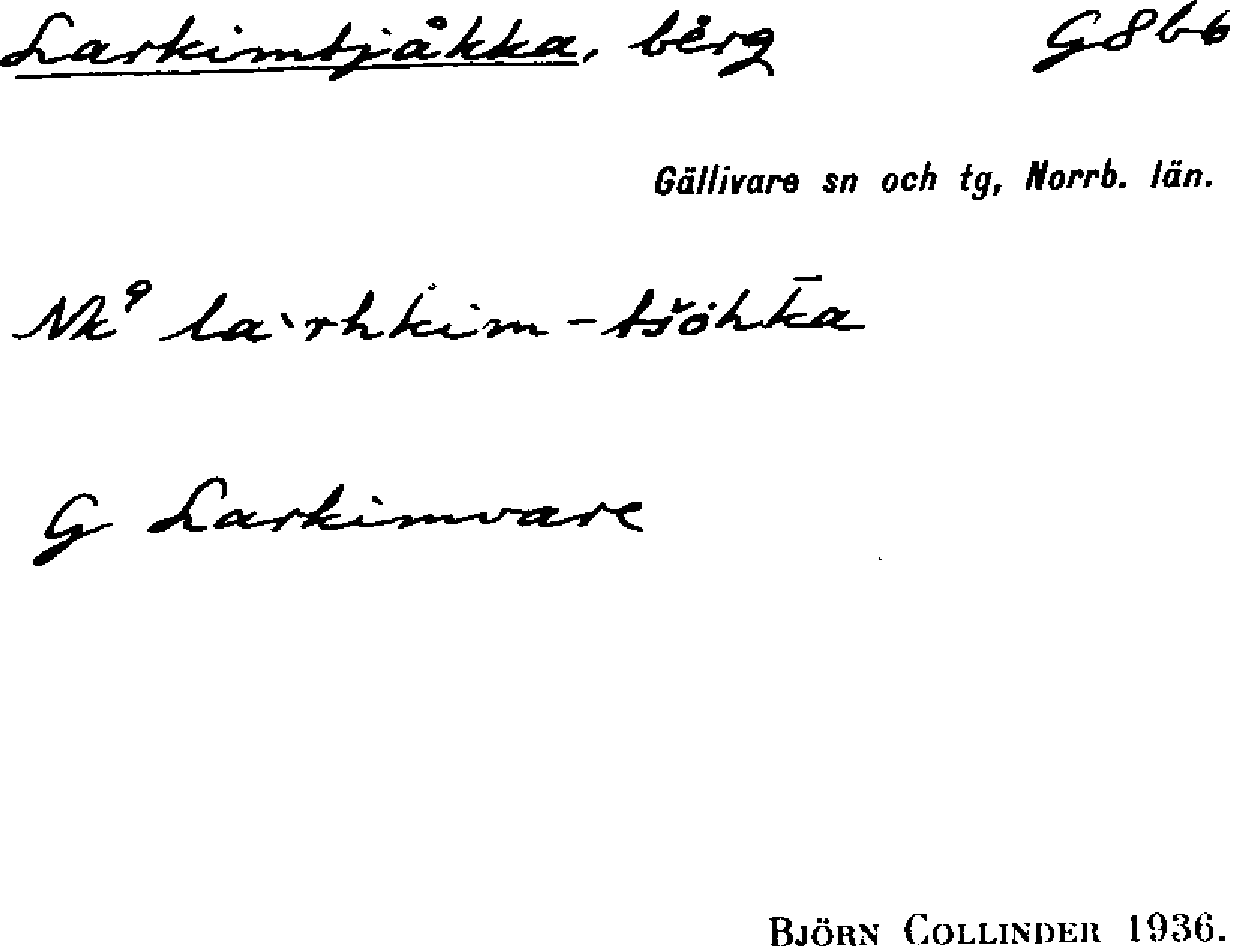 Larkimtjåkka, berg G8b6
Gällivare sn och tg, Norrb. län.
Nk⁹ la`rhkim-tšåhk̄a
G Larkimvare
BJÖRN COLLINDER 1936.